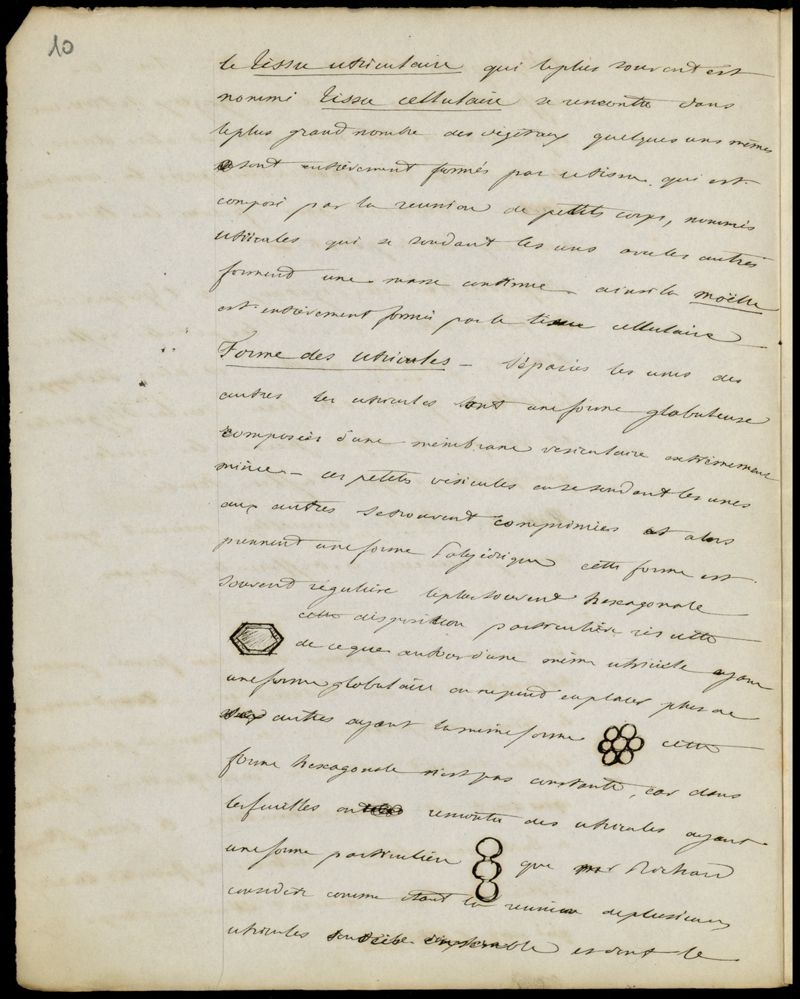 10
le tissu utriculaire qui le plus souvent est
nommé tissu cellulaire se rencontre dans
le plus grand nombre des végétaux quelques uns mêmes
sont entièrement formés par ce tissu qui est
composé par la reunion de petits corps, nommés
utricules qui se soudant les uns avec les autres
forment une masse continue ainsi la moëlle
est entièrement formée par le tissu cellulaire
Forme des utricules – séparés les unes des
autres les utricules ont une forme globuleuse
composées d'une membrane vesiculaire extrèmement
mince – ces petits vésicules en se soudant les unes
aux autres se trouvent comprimées et alors
prennent une forme Polyédrique cette forme est
souvent régulière le plus souvent hexagonale
cette disposition particulière résulte
de ce que autour d'une même utricule ayant
une forme globulaire on ne peut en placer plus de
autres ayant la même forme cette
forme hexagonale n'est pas constante, car dans
les feuilles on rencontre des utricules ayant
une forme particulière que Richard
considère comme étant la reunion de plusieurs
utricules ensemble